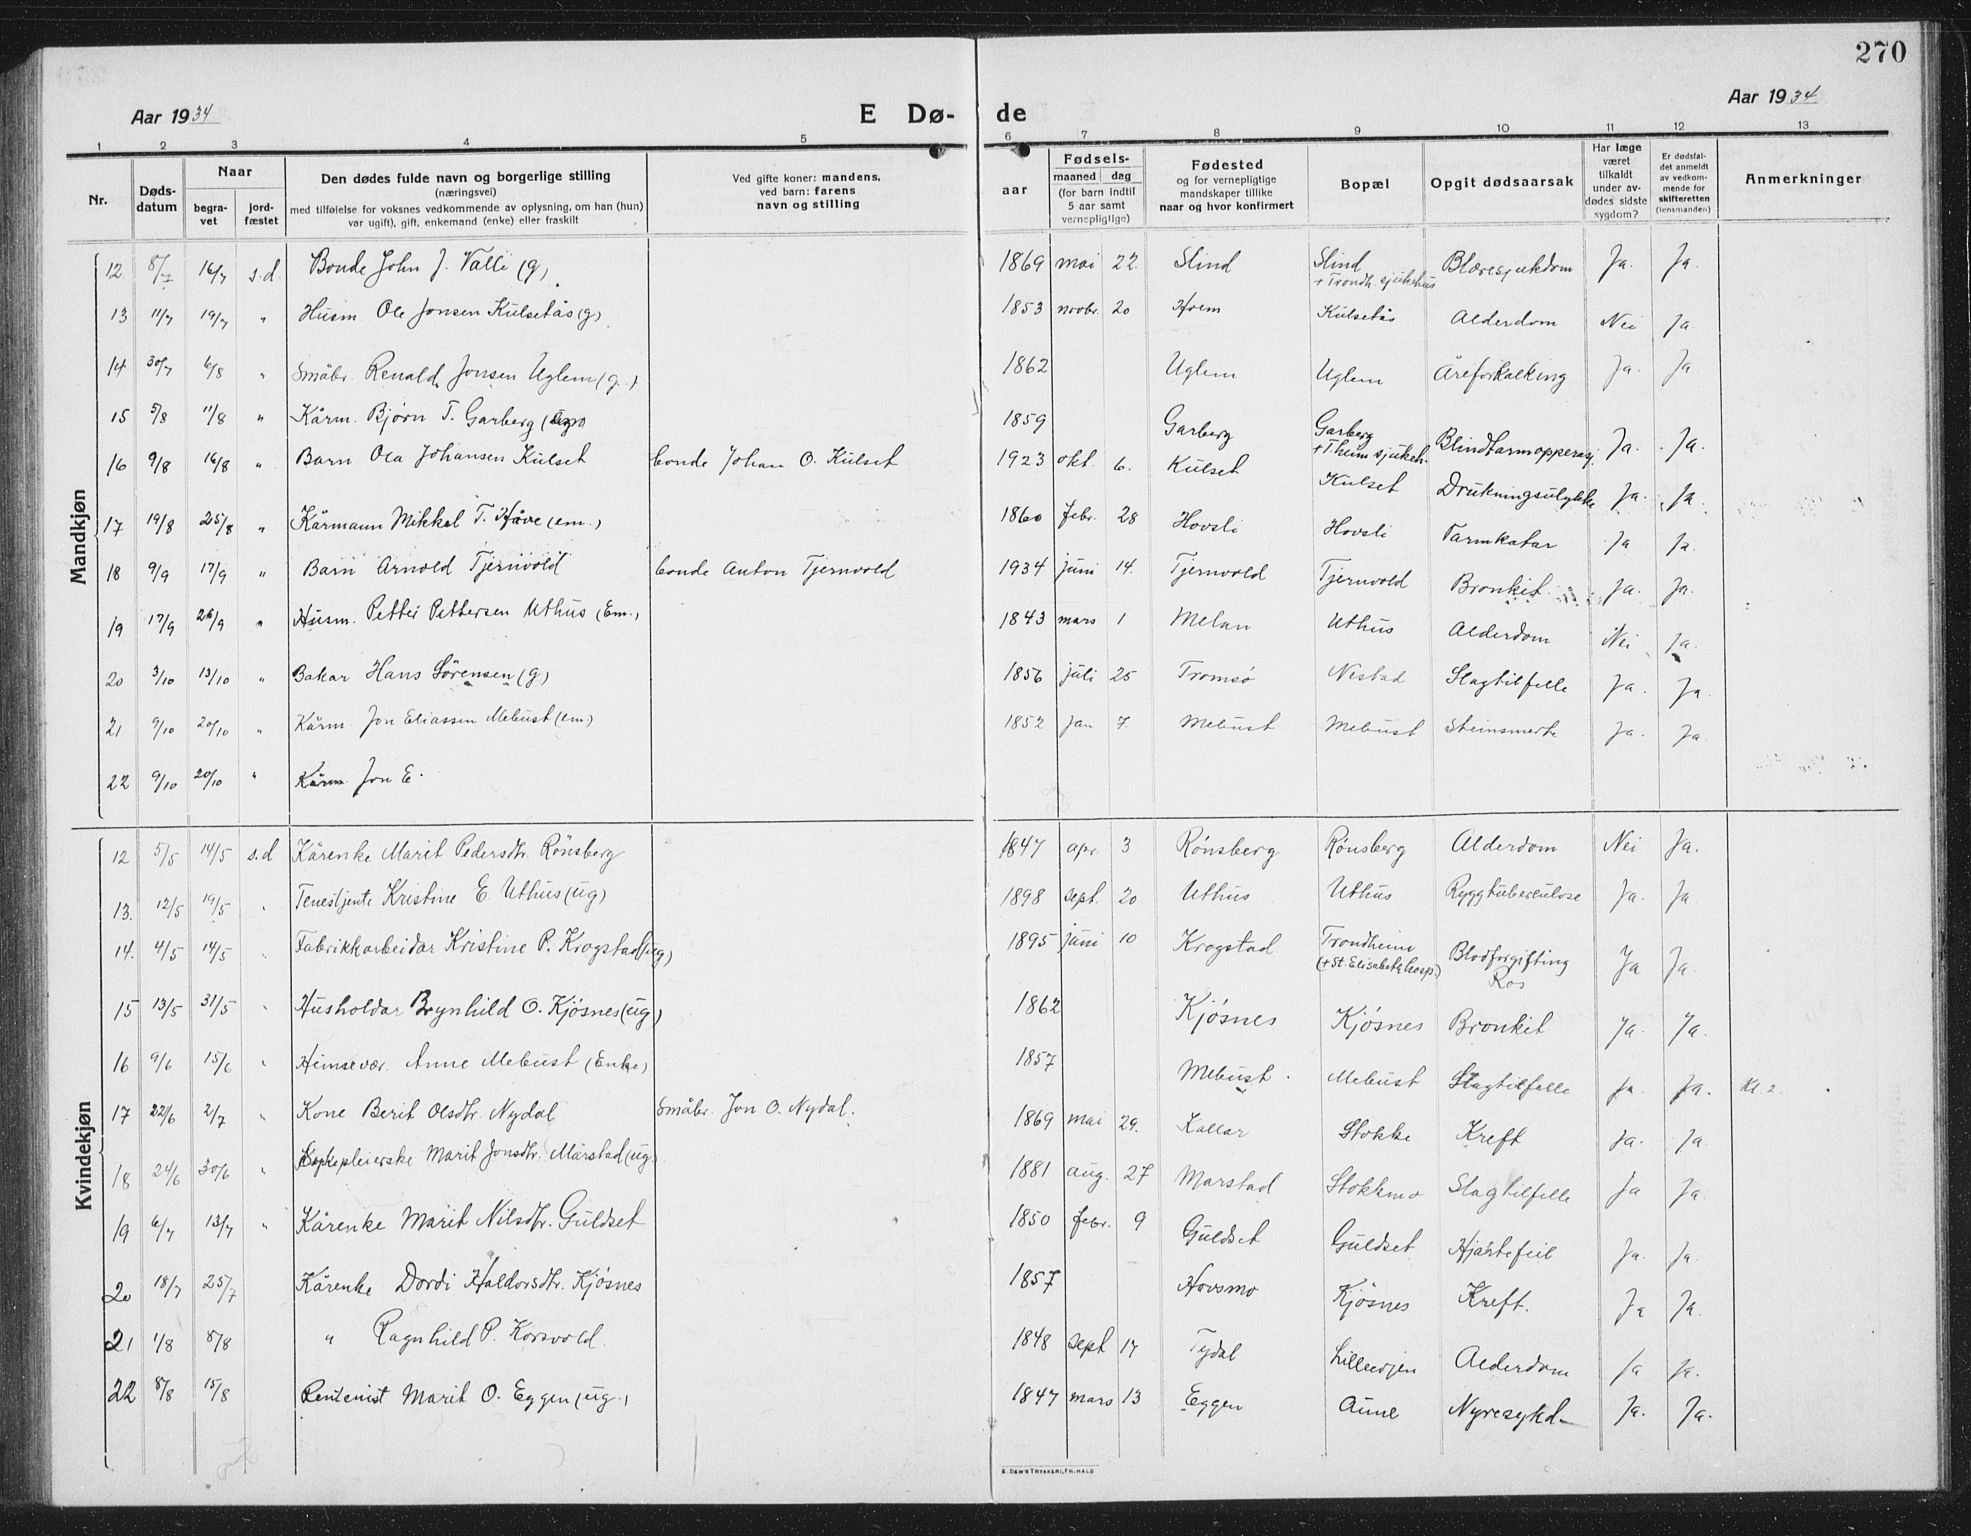 270
Aar 1934
E Dø-
de
Aar 1934
1 2 3 4 5 6 7 8 9 10 11 12 13
Nr.
Døds-
datum
Naar
begra-
vet
jord-
fæstet
Den dødes fulde navn og borgerlige stilling
(næringsvei)
med tilføielse for voksnes vedkommende av oplysning, om han (hun)
var ugift, gift, enkemand (enke) eller fraskilt
Ved gifte koner: mandens,
ved barn: farens
navn og stilling
aar
Fødsels-
maaned dag
(for barn indtil
5 aar samt
vernepligtige)
Fødested
og for vernepligtige
mandskaper tillike
naar og hvor konfirmert
Bopæl
Opgit dødsaarsak
Har læge
været
tilkaldt
under av-
dødes sidste
sygdom?
Er dødsfal-
det anmeldt
av vedkom-
mende for
skifteretten
(lensmanden)
Anmerkninger
Mandkjøn
12 8/7 16/7 s.d. Bonde John J. Valli (g) 1869 mai 22. Slind Slind + Trondh. sjukehus Blæresjukdom Ja. Ja.
13 11/7 19/7 " Husm. Ole Jonsen Kulsetås (g) 1853 novbr. 20 Hoem Kulsetås Alderdom Nei Ja.
14 30/7 6/8 " Småbr. Renald Jonsen Uglem (g.) 1862 Uglem Uglem Åreforkalking Ja. Ja
15 5/8 11/8 " Kårm. Bjørn T. Garberg 1859 Garberg Garberg + T.heim sjukeh. Blindtarmopperasj. Ja. Ja.
16 9/8 16/8 " Barn Ola Johansen Kulset bonde Johan O. Kulset 1923 okt. 6. Kulset Kulset Drukningsulykke Ja. Ja.
17 19/8 25/8 " Kårmann Mikkal T. Håve (em.) 1860 febr. 28 Hovsli Hovsli Tarmkatar Ja Ja.
18 9/9 17/9 " Barn Arnold Tjernvold bonde Anton Tjernvold 1934 juni 14. Tjernvold Tjernvold Bronkit. Ja. Ja.
19 17/9 26/9 " Husm. Petter Pettersen Uthus (Em.) 1843 mars 1 Melan Uthus Alderdom Nei Ja.
20 3/10 13/10 " Bakar Hans Sørensen (g) 1856 juli 25 Tromsø Nestad Slagtilfelle Ja. Ja.
21 9/10 20/10 " Kårm. Jon Eliassen Mebust (em.) 1852 jan 7. Mebust Mebust Steinsmerte Ja. Ja.
22 9/10 20/10 " Kårm. Jon E.
Kvindekjøn
12 5/5 14/5 s.d Kårenke Marit Pedersdtr. Rønsberg 1847 apr. 3 Rønsberg Rønsberg Alderdom Nei Ja.
13. 12/5 19/5 Tenestjente Kristine E. Uthus (ug) 1898 sept. 20 Uthus Uthus Ryggtuberculose Ja. Ja
14. 4/5 14/5 Fabrikkarbeidar Kristine P. Krogstad (ug) 1895 juni 10 Krogstad Trondheim (+ St. Elisabeth hosp.) Blodforgifting Ros Ja Ja.
15 13/5 31/5 Husholdar Brynhild O. Kjøsnes (ug) 1862 Kjøsnes Kjøsnes Bronkit Ja. Ja.
16 9/6 15/6 Heimevær. Anne Mebust (Enke) 1857 Mebust. Mebust Slagtilfelle Ja. Ja. Kl 2.
17 22/6 2/7 Kone Berit Olsdtr. Nydal Småbr. Jon O. Nydal. 1869 mai 29. Kallar Stokke Kreft Ja. Ja.
18 24/6 30/6 Sjukepleierske Marit Jonsdtr. Marstad (ug) 1881 aug. 27 Marstad Stokkmo Slagtilfelle Ja Ja.
19 6/7 13/7 " Kårenke Marit Nilsdtr. Guldset 1850 febr. 9 Guldset Guldset Hjartefeil Ja. Ja.
20 18/7 25/7 Kårenke Dordi Haldorsdtr. Kjøsnes 1857 Hovsmo Kjøsnes Kreft. Ja Ja.
21 1/8 8/8 " Ragnhild P. Korsvold. 1848 sept 17 Tydal Lilleevjen Alderdom Ja Ja.
22 8/8 15/8 Rentenist Marit O. Eggen (ug.) 1847 mars 13 Eggen Aune Nyresykd– Ja. Ja.
E. DEM'S TRYKKERI, FR.HALD